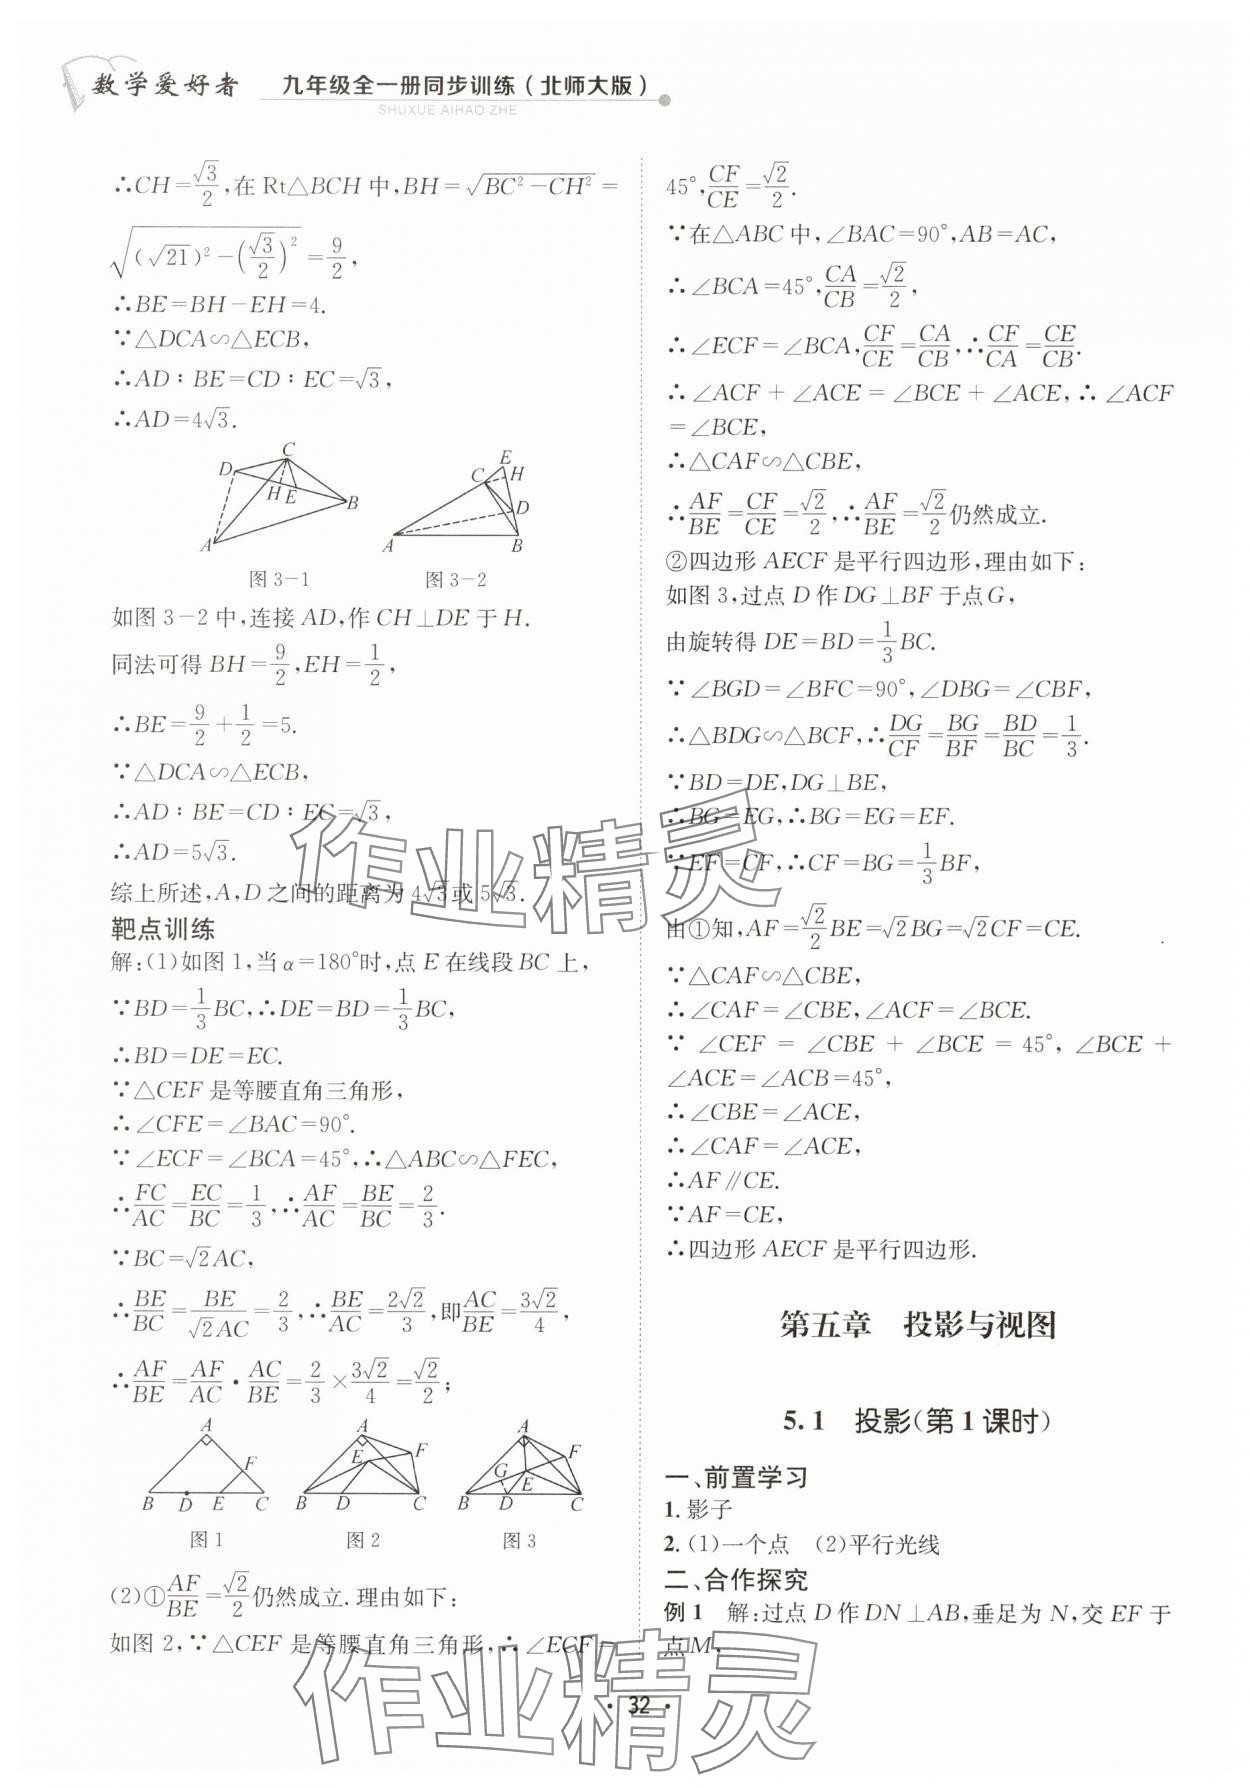 数学爱好者
九年级全一册同步训练(北师大版)
SHUXUE AIHAO ZHE
∴CH=√3/2,在 Rt△BCH 中,BH=√(BC²-CH²)=
√((√21)²-(√3/2)²)=9/2,
∴BE=BH-EH=4.
∵△DCA∽△ECB,
∴AD:BE=CD:EC=√3,
∴AD=4√3.
D C H E B A
E C H D A B
图 3-1 图 3-2
如图 3-2 中,连接 AD,作 CH⊥DE 于 H.
同法可得 BH=9/2,EH=1/2,
∴BE=9/2+1/2=5.
∵△DCA∽△ECB,
∴AD:BE=CD:EC=√3,
∴AD=5√3.
综上所述,A,D 之间的距离为 4√3或 5√3.
靶点训练
解:(1)如图 1,当 α=180°时,点 E 在线段 BC 上,
∵BD=1/3BC,∴DE=BD=1/3BC,
∴BD=DE=EC.
∵△CEF 是等腰直角三角形,
∴∠CFE=∠BAC=90°.
∵∠ECF=∠BCA=45°,∴△ABC∽△FEC,
∴FC/AC=EC/BC=1/3,∴AF/AC=BE/BC=2/3.
∵BC=√2AC,
∴BE/BC=BE/√2AC=2/3,∴BE/AC=2√2/3,即AC/BE=3√2/4,
∴AF/BE=AF/AC·AC/BE=2/3×3√2/4=√2/2;
A F B D E C
A E F B D C
A F G E B D C
图 1 图 2 图 3
(2)①AF/BE=√2/2仍然成立.理由如下:
如图 2,∵△CEF 是等腰直角三角形,∴∠ECF=
45°,CF/CE=√2/2.
∵在△ABC 中,∠BAC=90°,AB=AC,
∴∠BCA=45°,CA/CB=√2/2,
∴∠ECF=∠BCA,CF/CE=CA/CB,∴CF/CA=CE/CB.
∴∠ACF+∠ACE=∠BCE+∠ACE,∴∠ACF
=∠BCE,
∴△CAF∽△CBE,
∴AF/BE=CF/CE=√2/2,∴AF/BE=√2/2仍然成立.
②四边形 AECF 是平行四边形,理由如下:
如图 3,过点 D 作 DG⊥BF 于点 G,
由旋转得 DE=BD=1/3BC.
∵∠BGD=∠BFC=90°,∠DBG=∠CBF,
∴△BDG∽△BCF,∴DG/CF=BG/BF=BD/BC=1/3.
∵BD=DE,DG⊥BE,
∴BG=EG,∴BG=EG=EF.
∵EF=CF,∴CF=BG=1/3BF,
由①知,AF=√2/2BE=√2BG=√2CF=CE.
∵△CAF∽△CBE,
∴∠CAF=∠CBE,∠ACF=∠BCE.
∵∠CEF=∠CBE+∠BCE=45°,∠BCE+
∠ACE=∠ACB=45°,
∴∠CBE=∠ACE,
∴∠CAF=∠ACE,
∴AF∥CE.
∵AF=CE,
∴四边形 AECF 是平行四边形.
第五章 投影与视图
5.1 投影(第 1 课时)
一、前置学习
1.影子
2.(1)一个点 (2)平行光线
二、合作探究
例 1 解:过点 D 作 DN⊥AB,垂足为 N,交 EF 于
点 M,
·32·
作业精灵
作业精灵